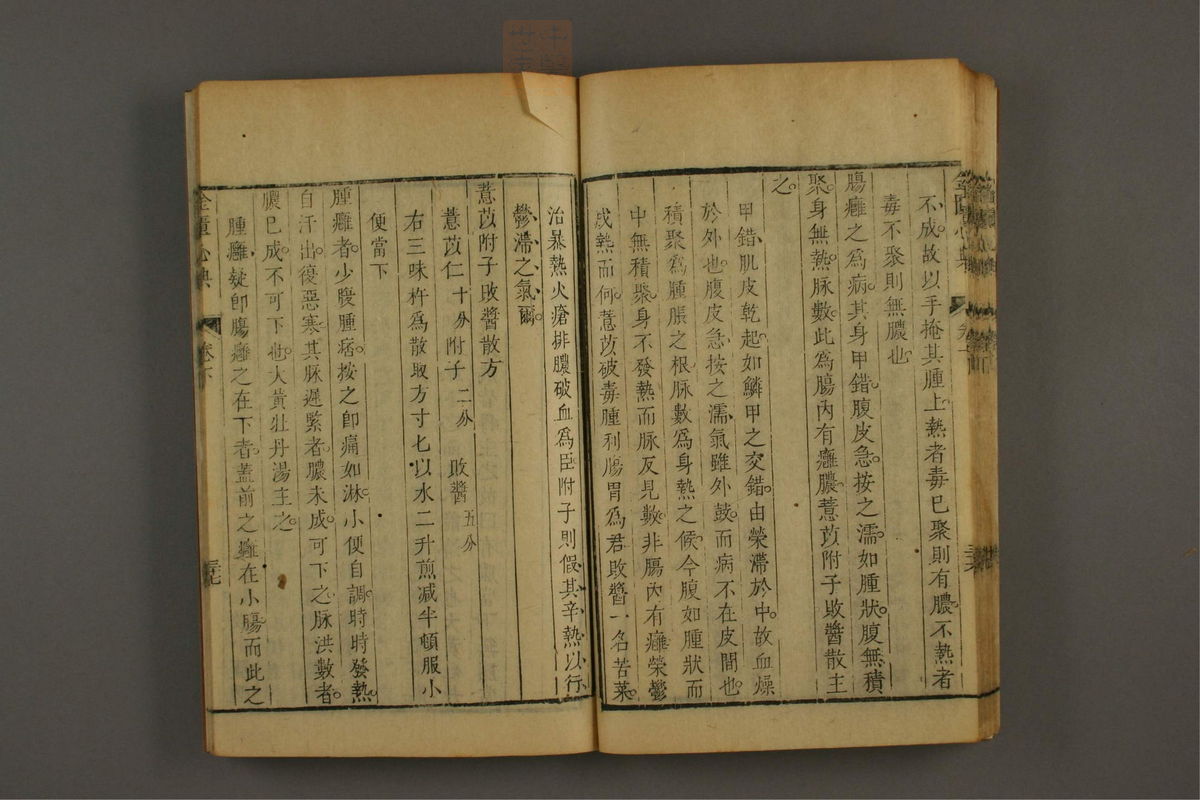 不成故以手掩其腫上熱者毒已聚則有膿不熱者
毒不聚則無膿也
腸癰之爲病其身甲錯腹皮急按之濡如腫狀腹無積
聚身無熱脉數此爲腸內有癰膿薏苡附子敗醬散主
之
甲錯肌皮乾起如鱗甲之交錯由榮滯於中故血燥
於外也腹皮急按之濡氣雖外鼓而病不在皮間也
積聚爲腫脹之根脉數爲身熱之候今腹如腫狀而
中無積聚身不發熱而脉反見數非腸內有癰榮鬱
成熱而何薏苡破毒腫利腸胃爲君敗醬一名苦菜
治暴熱火瘡排膿破血爲臣附子則假其辛熱以行
鬱滯之氣爾
薏苡附子敗醬散方
薏苡仁十分 附子二分 敗醬五分
右三味杵爲散取方寸匕以水二升煎减半頓服小
便當下
腫癰者少腹腫痞按之即痛如淋小便自調時時發熱
自汗出復惡寒其脉遲緊者膿未成可下之脉洪數者
膿已成不可下也大黃牡丹湯主之
腫癰疑即腸癰之在下者蓋前之癰在小腸而此之
金匱心典 卷下 三七